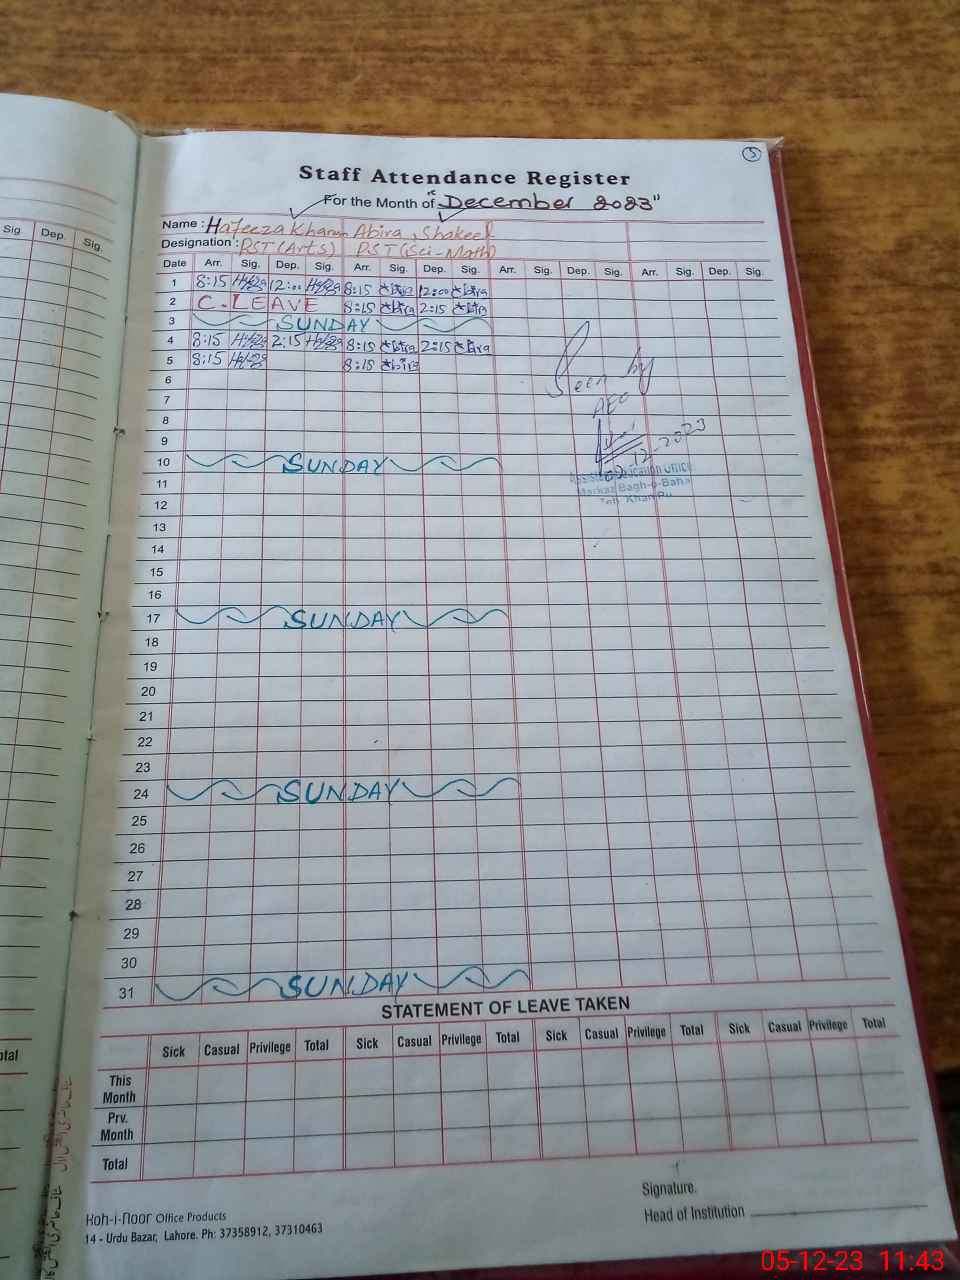 5
Staff Attendance Register
For the Month of "December 2023"
Name : Hafeeza Khanam Abira, Shakeel
Designation : PST (Arts) PST (Sci-Math)
Date Arr. Sig. Dep. Sig. Arr. Sig. Dep. Sig. Arr. Sig. Dep. Sig. Arr. Sig. Dep. Sig.
1 8:15 12:00 8:15 12:00
2 C. LEAVE 8:15 2:15
3 SUNDAY
4 8:15 2:15 8:15 2:15
5 8:15 8:15
6
7
8
9
10 SUNDAY
11
12
13
14
15
16
17 SUNDAY
18
19
20
21
22
23
24 SUNDAY
25
26
27
28
29
30
31 SUNDAY
Seen by
AEO
02.12.2023
Assistant Education Officer
Markaz Bagh-o-Bahar
Teh. Khan Pu
STATEMENT OF LEAVE TAKEN
Sick Casual Privilege Total Sick Casual Privilege Total Sick Casual Privilege Total Sick Casual Privilege Total
This Month
Prv. Month
Total
Signature.
Head of Institution
Koh-i-noor Office Products
14 - Urdu Bazar, Lahore. Ph: 37358912, 37310463
Sig. Dep. Sig.
05-12-23 11:43